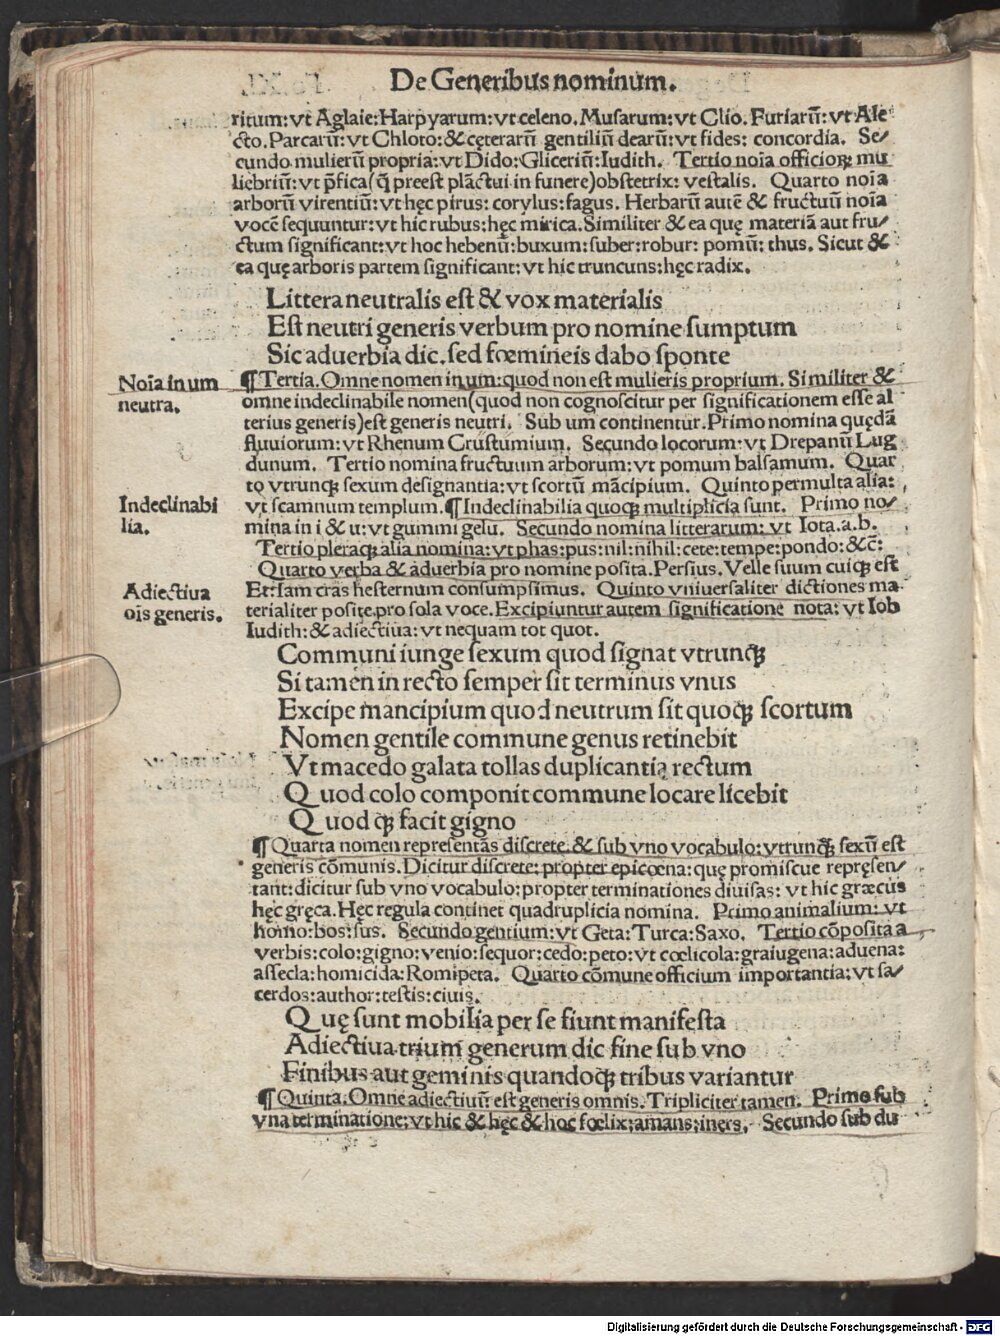 De Generibus nominum.
ritum: vt Aglaie: Harpyarum: vt celeno. Musarum: vt Clio. Furiarũ: vt Ale
cto. Parcarũ: vt Chloto: & cęterarũ gentiliũ dearũ: vt fides: concordia. Se⸗
cundo mulierũ propria: vt Dido: Gliceriũ: Iudith. Tertio noīa officioꝝ mu
liebriũ: vt p̃fica (q̃ preest plãctui in funere) obstetrix: vestalis. Quarto noīa
arborũ virentiũ: vt hęc pirus: corylus: fagus. Herbarũ autẽ & fructuũ noīa
vocẽ sequuntur: vt hic rubus: hęc mirica. Similiter & ea quę materiã aut fru⸗
ctum significant: vt hoc hebenũ: buxum: suber: robur: pomũ: thus. Sicut &
ea quę arboris partem significant: vt hic truncuns: hęc radix.
Littera neutralis est & vox materialis
Est neutri generis verbum pro nomine sumptum
Sic aduerbia dic. sed fœmineis dabo sponte
Noīa in um
neutra.
¶ Tertia. Omne nomen in um: quod non est mulieris proprium. Similiter &
omne indeclinabile nomen (quod non cognoscitur per significationem esse al
terius generis) est generis neutri. Sub um continentur. Primo nomina quędã
fluuiorum: vt Rhenum Crustumium. Secundo locorum: vt Drepanũ Lug
dunum. Tertio nomina fructuum arborum: vt pomum balsamum. Quar
to vtrunqꝫ sexum designantia: vt scortũ mãcipium. Quinto permulta alia:
Indeclinabi
lia.
vt scamnum templum. ¶ Indeclinabilia quoqꝫ multiplicia sunt. Primo no⸗
mina in i & u: vt gummi gelu. Secundo nomina litterarum: vt Iota. a. b.
Tertio pleraqꝫ alia nomina: vt phas: pus: nil: nihil: cete: tempe: pondo: &c̃:
Quarto verba & aduerbia pro nomine posita. Persius. Velle suum cuiqꝫ est
Adiectiua
oīs generis.
Et: Iam cras hesternum consumpsimus. Quinto vniuersaliter dictiones ma⸗
terialiter posite. pro sola voce. Excipiuntur autem significatione nota: vt Iob
Iudith: & adiectiua: vt nequam tot quot.
Communi iunge sexum quod signat vtrunqꝫ
Si tamen in recto semper sit terminus vnus
Excipe mancipium quod neutrum sit quoqꝫ scortum
Nomen gentile commune genus retinebit
Vt macedo galata tollas duplicantia rectum
Quod colo componit commune locare licebit
Quod qꝫ facit gigno
¶ Quarta nomen representãs discrete. & sub vno vocabulo: vtrunqꝫ sexũ est
generis cõmunis. Dicitur discrete: propter epicœna: quę promiscue repręsen⸗
tant: dicitur sub vno vocabulo: propter terminationes diuisas: vt hic græcus
hęc gręca. Hęc regula continet quadruplicia nomina. Primo animalium: vt
homo: bos: sus. Secundo gentium: vt Geta: Turca: Saxo. Tertio cõposita a
verbis: colo: gigno: venio: sequor: cedo: peto: vt cœlicola: graiugena: aduena:
assecla: homicida: Romipeta. Quarto cõmune officium importantia: vt sa⸗
cerdos: author: testis: ciuis.
Quę sunt mobilia per se fiunt manifesta
Adiectiua trium generum dic fine sub vno
Finibus aut geminis quandoqꝫ tribus variantur
¶ Quinta. Omne adiectiuũ est generis omnis. Tripliciter tamen. Primo sub
vna terminatione: vt hic & hęc & hoc fœlix: amans: iners. Secundo sub du
Digitalisierung gefördert durch die Deutsche Forschungsgemeinschaft - DFG